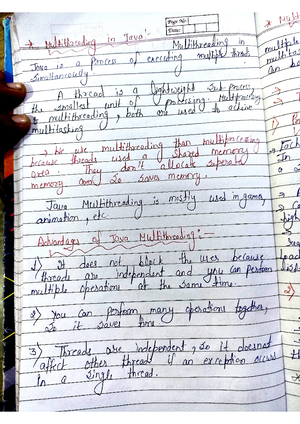 Page No.
Date:
* Multithreading in Java :-
Multithreading in
Java is a process of executing multiple threads
simultaneously.
A thread is a lightweight sub process
the smallest unit of processing. Multiprocessing
& multithreading, both are used to achieve
multitasking
→ We use multithreading than multiprocessing
because threads used a shared memory
area. They don't allocate seperate
memory area so saves memory.
Java Multithreading is mostly used in games,
animation, etc.
Advantages of Java Multithreading :-
1) It does not block the user because
threads are independent and you can perform
multiple operations at the same time.
2) You can perform many operations together,
so it saves time
3) Threads are independent, so it doesnot
affect other thread if an exception occurs
in a single thread.